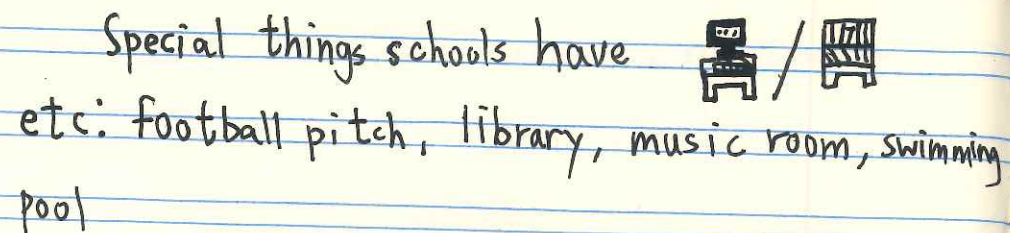 Special things schools have /
etc: football pitch, library, music room, swimming
pool